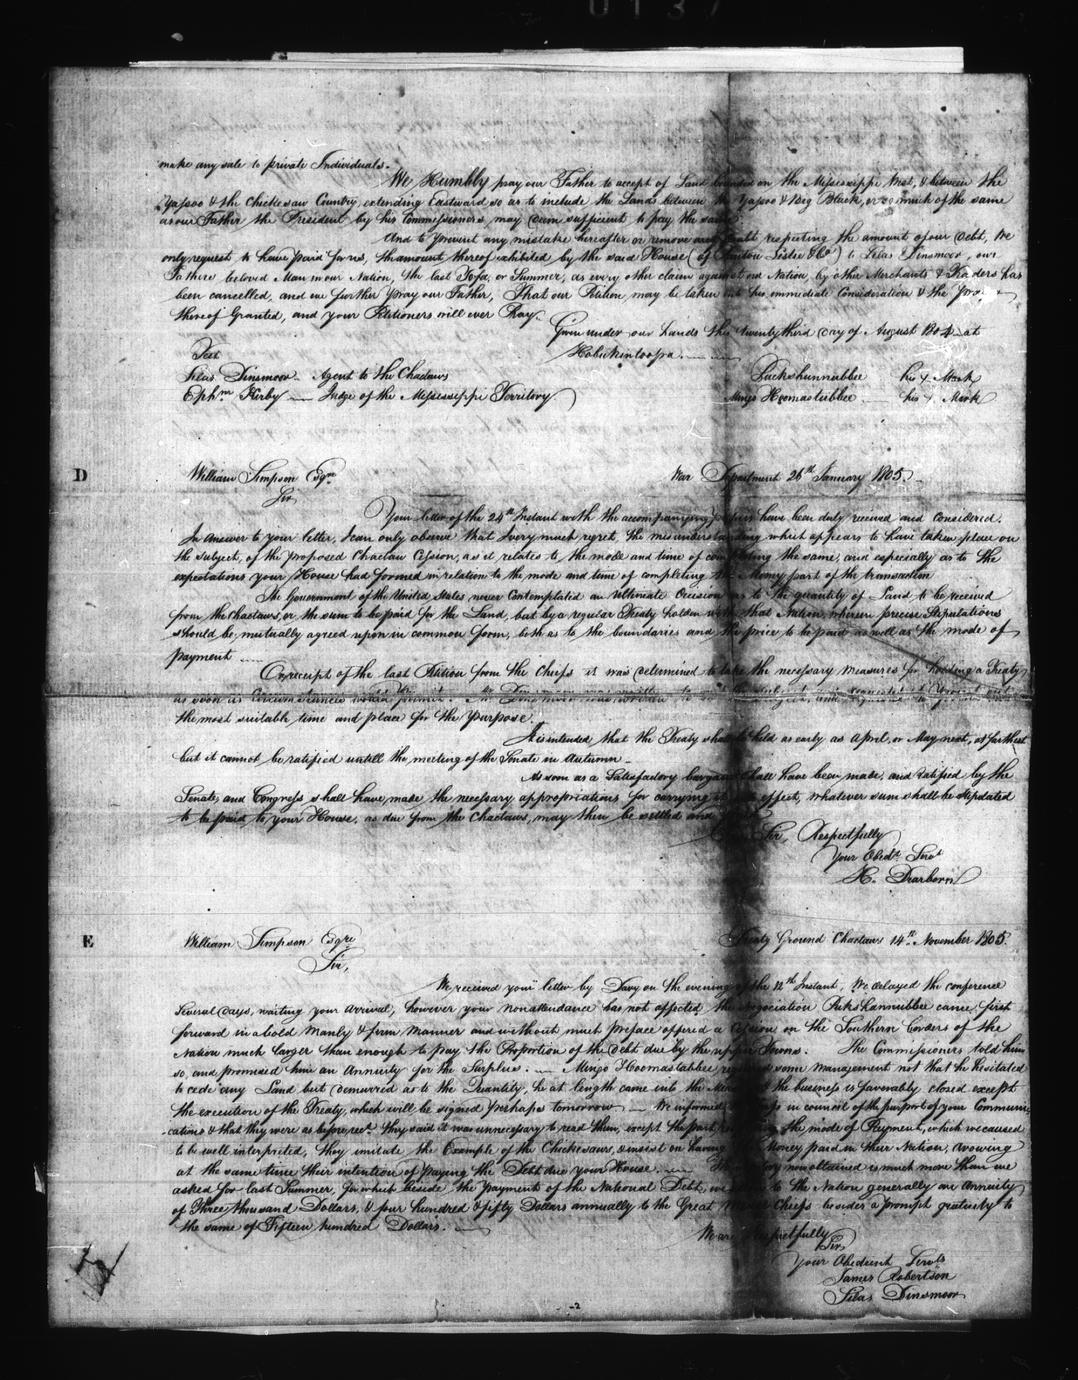 make any sale to private Individuals.
We Humbly pray our Father to accept of Land bounded on the Mississippi West, & between the
Yasoo & the Chickesaw Country, extending Eastward so as to include the Lands between the Yasoo & Big Black, or so much of the same
as our Father the President, by his Commissioners, may deem sufficient to pay the same.
And to prevent any mistake hereafter or remove any doubt respecting the amount of our Debt, We
only request to have paid for us, the amount thereof exhibited by the said House (of Panton Leslie & Co) to Silas Dinsmoor, our
Fathers beloved Man in our Nation, the last Fofa, or Summer, as every other claim against our Nation, by other Merchants & Traders has
been cancelled, and we further pray our Father, That our Petition, may be taken into his immediate Consideration & the
thereof Granted, and your Petitioners will ever Pray.
Given under our hands this twenty third day of August 1804 at
Hobukintoopa.
Test
Silas Dinsmoor Agent to the Chactaws
Puckshunnubbee his x Mark
Ephm Kirby Judge of the Mississippi Territory
Mingo Hoomastubbee his x Mark
D
William Simpson Esqre
War Department 26th January 1805.
Sir
Your letter of the 24th Instant with the accompanying papers have been duly received and considered.
In answer to your letter, I can only observe that I very much regret, the misunderstanding which appears to have taken place on
the subject, of the proposed Chactaw Cession, as it relates to the mode and time of completing the same, and especially as to the
expectations your House had formed in relation to the mode and time of completing the Money part of the transaction
The Government of the United States never Contemplated an Ultimate Decision as to the quantity of Land to be received
from the Chactaws, or the sum to be paid for the Land, but by a regular Treaty holden with that Nation, wherein precise Stipulations
should be, mutually agreed upon in common form, both as to the boundaries and the price to be paid as well as the mode of
payment
On receipt of the last Petition from the Chiefs it was determined to take the necessary measures for holding a Treaty
as soon as Circumstances would permit. Mr Dinsmoor was written to on the subject, and requested to
the most suitable time and place for the purpose.
It is intended that the Treaty shall be held as early as April, or May next, at farthest
but it cannot be ratified untill the meeting of the Senate in Autumn
As soon as a Satisfactory bargain shall have been made, and ratified by the
Senate, and Congress shall have made the necessary appropriations for carrying it into effect, whatever sum shall be stipulated
to be paid to your House, as due from the Chactaws, may then be settled and
Sir, Respectfully
Your Obedt Servt
H. Dearborn
E
William Simpson Esqre
Treaty Ground Chactaws 14th November 1805.
Sir,
We received your letter by Davy on the evening of the 12th Instant, We delayed the conference
several days, waiting your arrival, however your nonattendance has not affected the negociation Pukshannubbee came first
forward in a bold Manly & firm manner and without much preface offered a Cession on the Southern borders of the
Nation much larger than enough to pay the Proportion of the Debt due by the upper Towns. The Commissioners told him
so, and promised him an Annuity for the Surplus. Mingo Hoomastabbee required some management not that he hesitated
to cede any Land but demurred as to the Quantity, he at length came into the & the business is favorably closed except
the execution of the Treaty, which will be signed perhaps tomorrow We informed the Chiefs in council of the purport of your Communi-
cations & that they were as before, recd. they said it was unnecessary to read them, except the part the mode of Payment, which we caused
to be well interpreted, they imitate the Example of the Chickesaws, & insist on having the Money paid in their Nation, avowing
at the same time their intention of paying the Debt due your House. The now obtained is much more than we
asked for last Summer, for which beside the payment of the National Debt, we to the Nation generally an Annuity
of Three thousand Dollars, & four hundred & fifty Dollars annually to the Great Chiefs besides a prompt gratuity to
the same of Fifteen hundred Dollars.
We are Respectfully
Sir,
Your Obedient Servts
James Robertson
Silas Dinsmoor
-2